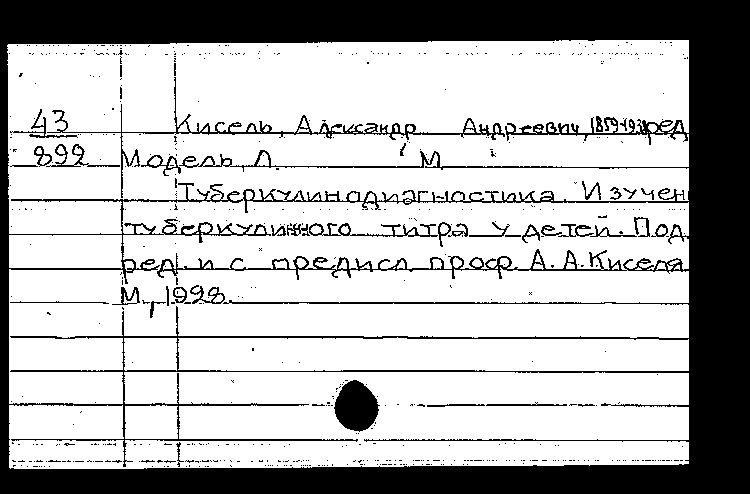 43 Кисель, Александр Андреевич, 1859-1938, ред
892 Модель, Л. М.
Туберкулинодиагностика. Изучен
туберкулинного титра у детей. Под
ред. и с предисл. проф. А. А. Киселя
М., 1928.